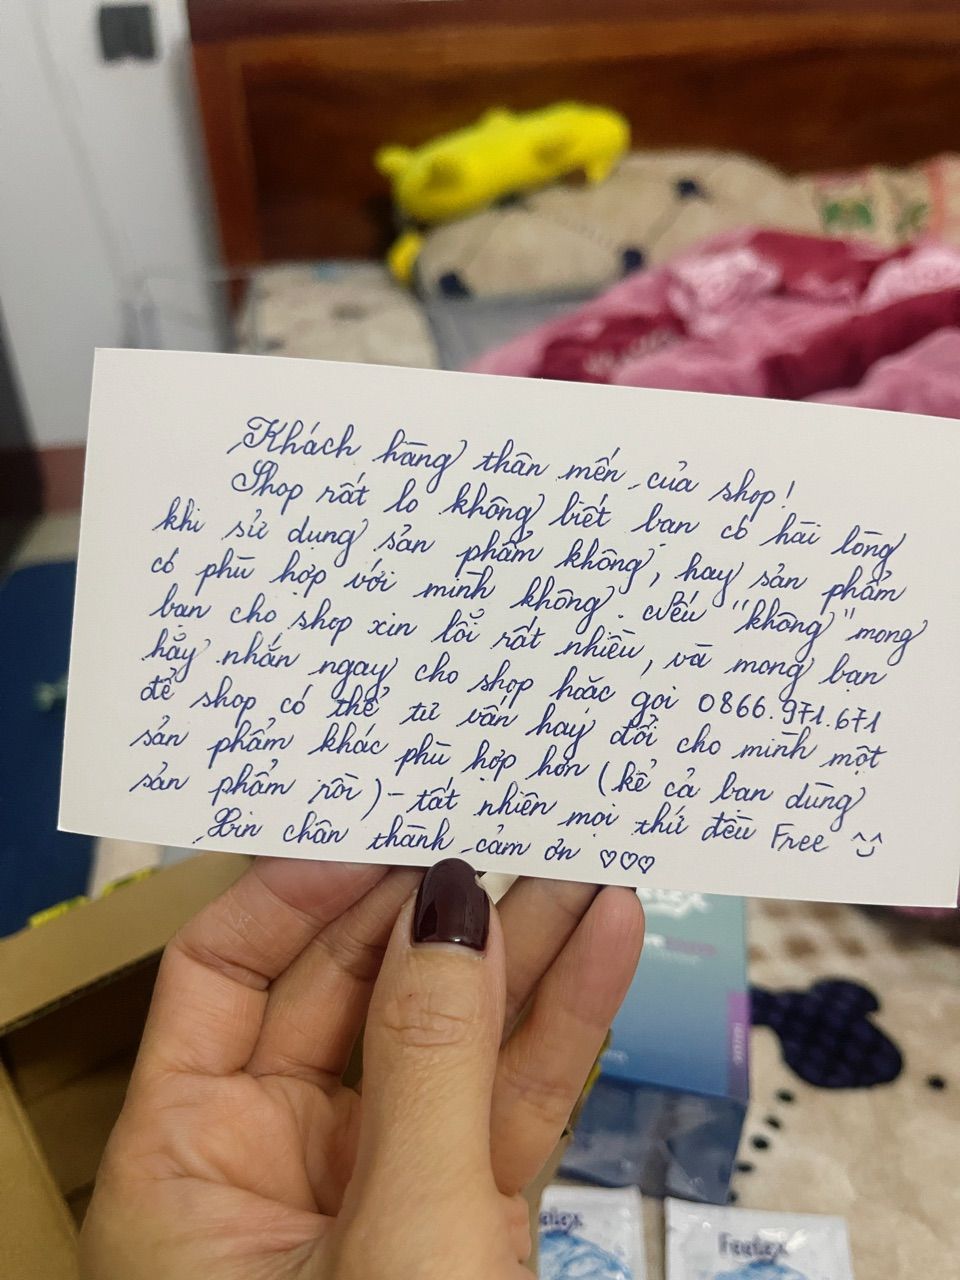 Khách hàng thân mến của shop!
Shop rất lo không biết bạn có hài lòng
khi sử dụng sản phẩm không, hay sản phẩm
có phù hợp với mình không. Nếu "không" mong
bạn cho shop xin lỗi rất nhiều, và mong bạn
hãy nhắn ngay cho shop hoặc gọi 0866.971.671
để shop có thể tư vấn hay đổi cho mình một
sản phẩm khác phù hợp hơn (kể cả bạn dùng
sản phẩm rồi) - tất nhiên mọi thứ đều Free ^^
Xin chân thành cảm ơn ♡♡♡
Feelex